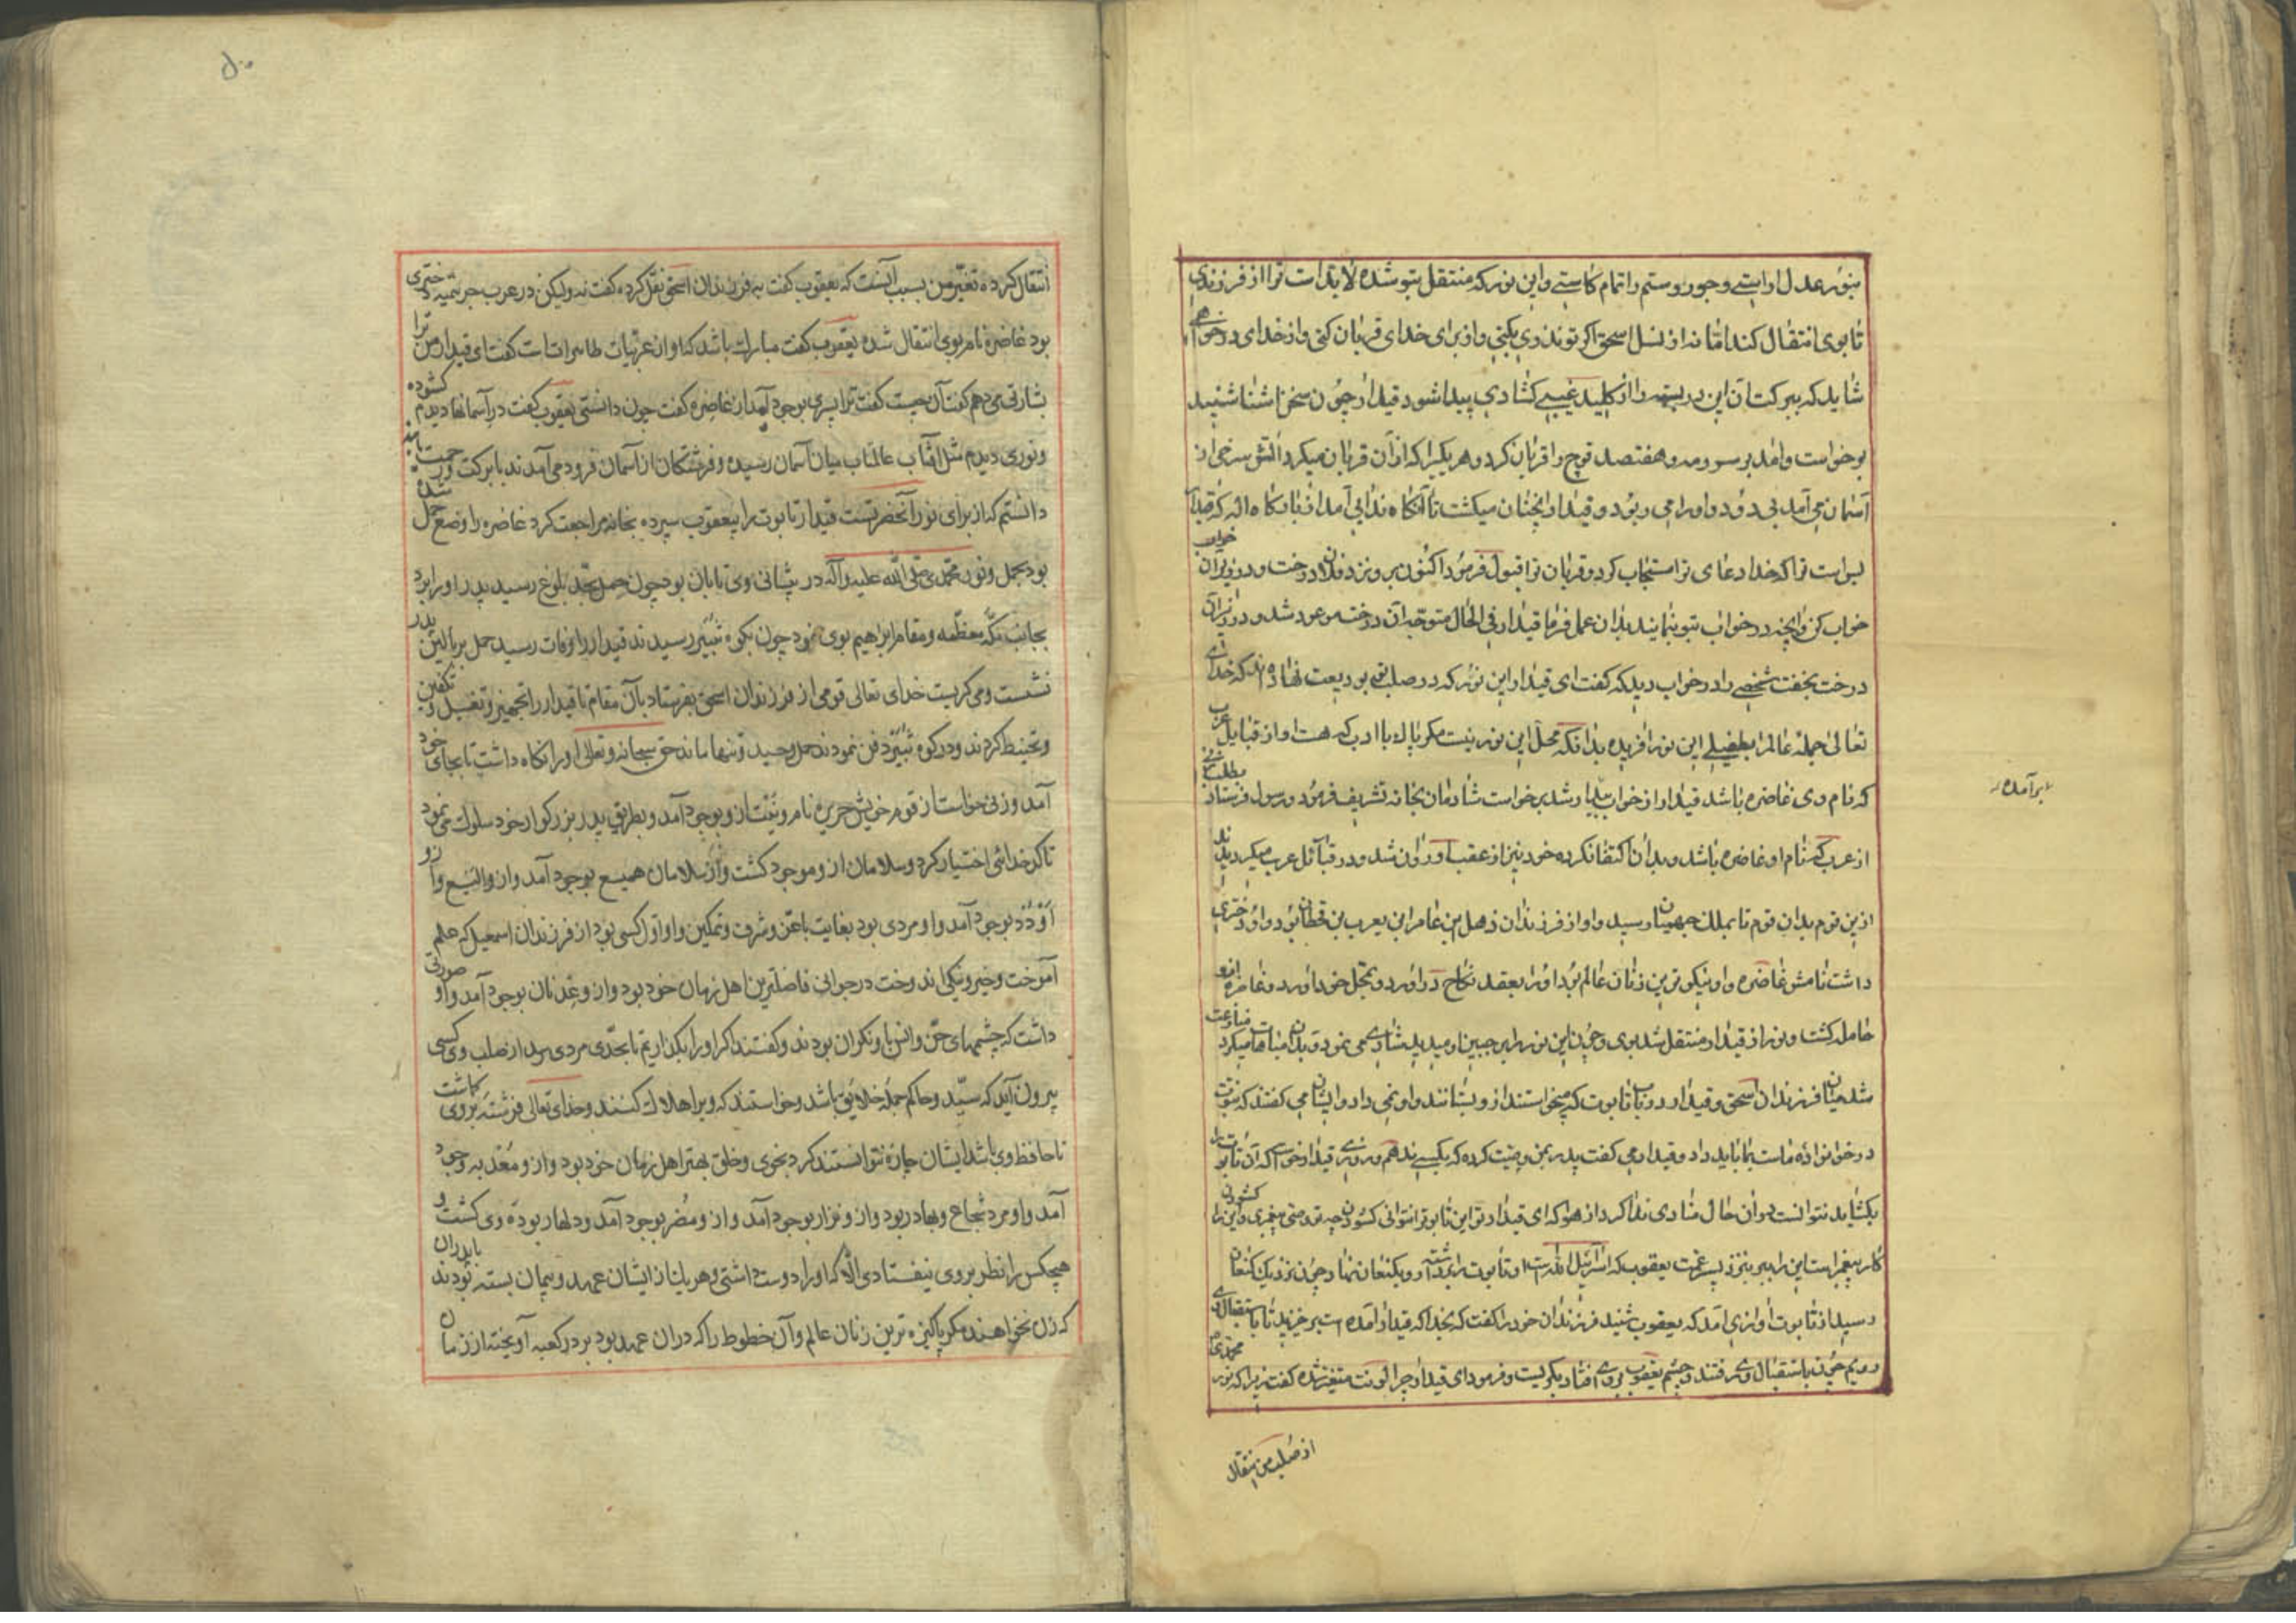 بنور عدل اراستی وجور وستم را تمام کاستی واین نور که منتقل بتو شده لابد است ترا از فرزندی
تا بوی انتقال کند اما نه از نسل اسحق اگر تو نذری بکنی واز برای خدای قربان کنی واز خدای درخواهی
شاید که ببرکت آن این در بسته را از کلید غیبی کشادی پیدا شود قیدار چون سخن اشنا شنید
برخواست وامد بر سر ورمه وهفتصد قوچ را قربان کرد وهر یکیرا که ازان قربان میکرد اتش سرخی از
آسمان می آمد بی دود واورا می ربود وقیدار انچنان میکشت تا آنکاه ندایی آمد از بارکاه اله که قیدار
بس است ترا که خدا دعای ترا مستجاب کرد وقربان ترا قبول فرمود اکنون برو نزد فلان درخت ودر زیر ان خواب
خواب کن وانچه در خواب بتو نمایند بدان عمل فرما قیدار فی الحال متوجه آن درخت موعود شد ودر زیر آن
درخت بخفت شخصی را در خواب دید که کفت ای قیدار این نور که در صلب تو بودیعت نهاده اند که خدای
تعالی جمله عالم را بطفیل این نور افریده بدانکه محل این نور نیست مکر پاک با ادب که هست او از قبایل عرب
که نام وی غاضره باشد قیدار از خواب بیدار شد برخواست شادمان بخانه تشریف فرمود ورسول فرستاد بطلب زنی
برآمده
از عرب که نام او غاضره باشد وبدان اکتفا نکرده خود نیز از عقب او روان شد ودر قبائل عرب میکردیدند
ازین قوم بدان قوم تا بملک جهینان رسید واو از فرزندان ذهل بن عامر ابن یعرب بن قحطان بود واو دختری
داشت نامش غاضره واو نیکوترین زنان عالم بود اورا بعقد نکاح دراورد وبمحل خود اورد وغاضره ازو
حامله کشت ونور از قیدار منتقل شد بوی وچون این نور را بر جبین او میدید شادی می نمود وبدان مباهات میکرد منازعت
شد میان فرزندان اسحق وقیدار در باب تابوت که میخواستند ازو بستانند واو نمی داد وایشان می کفتند که نبوت
در خانواده ماست بما باید داد وقیدار می کفت پدر بمن وصیت کرده که بکسی ندهم وروزی قیدار خواست که آن تابوت را
بکشاید نتوانست دران حال منادی ندا کرد از هوا که ای قیدار تو این تابوت را نتوانی کشودن چه تو وصی پیغمبری واین را کشودن
کار پیغمبر است این را ببر بنزد پسر عمت یعقوب که اسرائیل الله است او تابوت را برداشته رو بکنعان نهاد وچون نزدیک کنعان
رسید از تابوت اوازی آمد که یعقوب شنید فرزندان خود را کفت که بخدا که قیدار آمده است برخیزید تا باستقبال وی
رویم چون باستقبال وی رفتند وچشم یعقوب بروی افتاد بکریست وفرمود ای قیدار چرا لونت متغیر شده کفت زیرا که نور محمدی
از صلب من انتقال
انتقال کرده تغیر من بسبب آنست که یعقوب کفت به فرزندان اسحق نقل کرده کفت نه ولیکن در عرب جرهمیه دختری
بود غاضره نام بوی انتقال شده یعقوب کفت مبارک باشد که او از عربیات طاهرات است کفت ای قیدار من ترا
بشارتی می دهم کفت آن چیست کفت ترا پسری بوجود آمد از غاضره کفت چون دانستی یعقوب کفت در آسمانها دیدم کشوده
ونوری دیدم مثل آفتاب عالمتاب میان آسمان رسیده وفرشتکان از آسمان فرود می آمدند با برکت ورحمت
دانستم که از برای نور آنحضرتست قیدار تابوت را بیعقوب سپرده بخانه مراجعت کرد غاضره را وضع حمل شده
بود بحمل ونور محمدی صلی الله علیه وآله در پیشانی وی تابان بود چون حمل بحد بلوغ رسید پدر اورا برد
بجانب مکه معظمه ومقام ابراهیم بوی نمود چون بکوه ثبیر رسیدند قیدار را وفات رسید حمل بر بالین پدر
نشست ومی کریست خدای تعالی قومی از فرزندان اسحق بفرستاد بآن مقام تا قیدار را تجهیز وتغسیل وتکفین
وتحنیط کردند ودر کوه ثبیر دفن نمودند حمل وحید وتنها ماند حق سبحانه وتعالی اورا نکاه داشت تا بجای خود
آمد وزنی خواست از قوم خویش حریره نام ونبت ازو بوجود آمد وبطریق پدر بزرکوار خود سلوک می نمود
تا کدخدائی اختیار کرد وسلامان ازو موجود کشت واز سلامان همیسع بوجود آمد وازو الیسع وازو
اودد بوجود آمد واو مردی بود بغایت باعز وشرف وتمکین واو اول کسی بود از فرزندان اسمعیل که علم
آموخت وخیر ونیکی اندوخت در جوانی فاضلترین اهل زمان خود بود وازو عدنان بوجود آمد واو صورتی
داشت که چشمهای جن وانس بارو نکران بودند وکفتند اکر اورا بکذاریم تا بحدی مردی رسد از صلب وی کسی
بیرون آید که سید وحاکم جمله خلایق باشد وخواستند که ویرا هلاک کنند وخدای تعالی فرشته بروی کماشت
تا حافظ وی باشد ایشان چاره نتوانستند کرد بخوی وخلق بهتر اهل زمان خود بود وازو معد بوجود
آمد واو مرد شجاع وبهادر بود وازو نزار بوجود آمد وازو مضر بوجود آمد ودلها ربوده وی کشت و
هیچکس را نظر بروی نیفتادی الا که اورا دوست داشتی وهر یک از ایشان عهد وپیمان بسته بودند با پدران
که زن نخواهند مکر پاکیزه ترین زنان عالم وآن خطوط را که دران عهد بود بر در کعبه آویخته از زمان